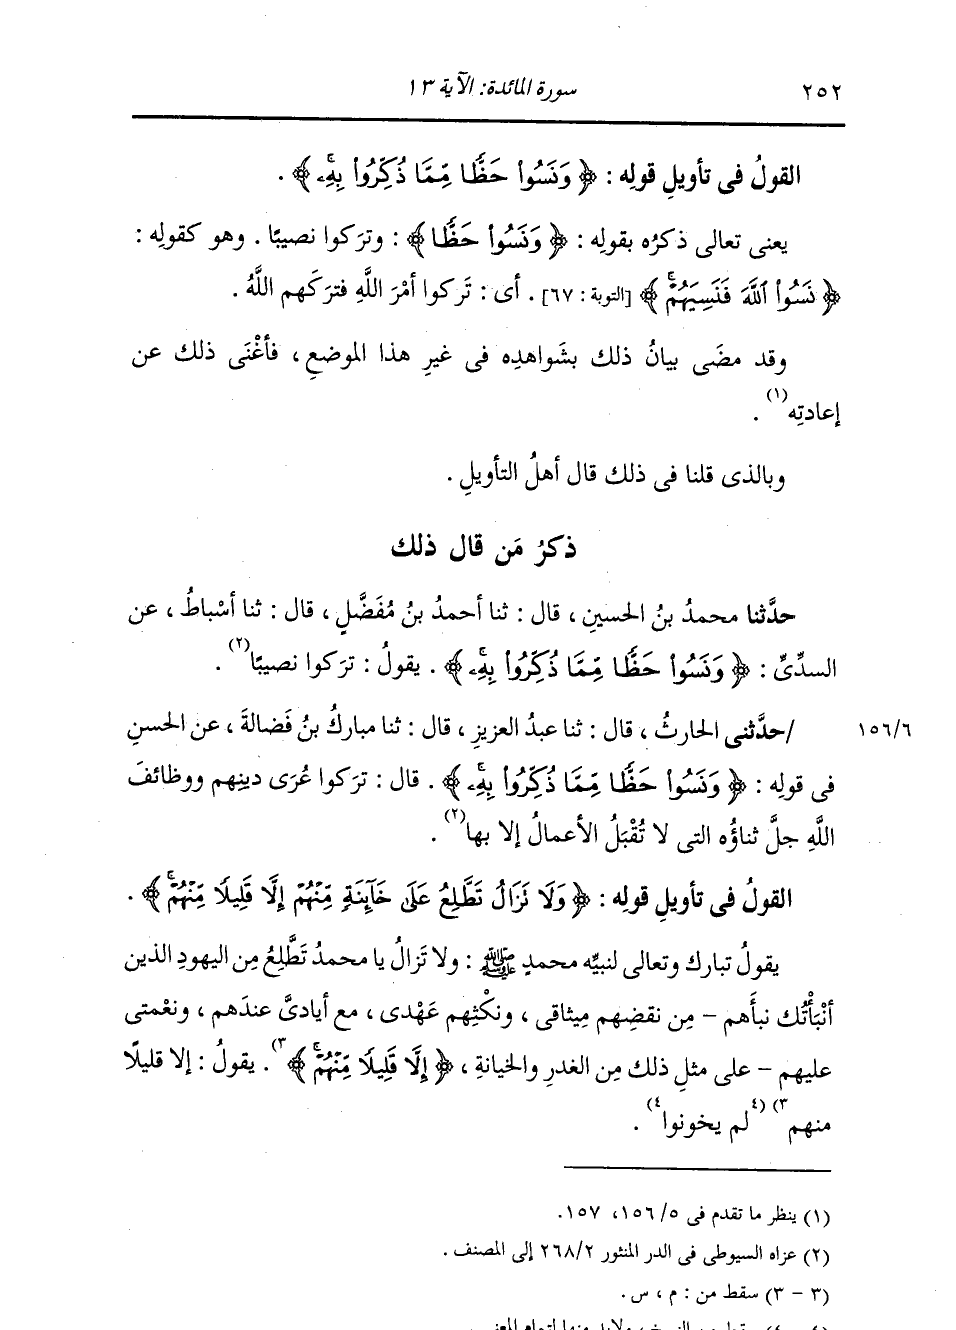 ٢٥٢ سورة المائدة: الآية ١٣
القولُ فى تأويلِ قولِه : ﴿ وَنَسُوا۟ حَظًّا مِّمَّا ذُكِّرُوا۟ بِهِۦۚ ﴾ .
يعنى تعالى ذكرُه بقولِه : ﴿ وَنَسُوا۟ حَظًّا ﴾ : وترَكوا نصيبًا . وهو كقولِه :
﴿ نَسُوا۟ ٱللَّهَ فَنَسِيَهُمْۚ ﴾ [التوبة : ٦٧] . أى : تَركوا أمْرَ اللَّهِ فترَكَهم اللَّهُ .
وقد مضَى بيانُ ذلك بشَواهدِه فى غيرِ هذا الموضعِ ، فأغْنَى ذلك عن
إعادتِه(١) .
وبالذى قلنا فى ذلك قال أهلُ التأويلِ .
ذكرُ مَن قال ذلك
حدَّثنا محمدُ بنُ الحسينِ ، قال : ثنا أحمدُ بنُ مُفَضَّلٍ ، قال : ثنا أسْباطُ ، عن
السدِّىِّ : ﴿ وَنَسُوا۟ حَظًّا مِّمَّا ذُكِّرُوا۟ بِهِۦۚ ﴾ . يقولُ : ترَكوا نصيبًا(٢) .
١٥٦/٦ /حدَّثنى الحارثُ ، قال : ثنا عبدُ العزيزِ ، قال : ثنا مباركُ بنُ فَضالةَ ، عن الحسنِ
فى قولِه : ﴿ وَنَسُوا۟ حَظًّا مِّمَّا ذُكِّرُوا۟ بِهِۦۚ ﴾ . قال : ترَكوا عُرَى دينِهم ووظائفَ
اللَّهِ جلَّ ثناؤُه التى لا تُقْبَلُ الأعمالُ إلا بها(٢) .
القولُ فى تأويلِ قولِه : ﴿ وَلَا نَزَالُ تَطَّلِعُ عَلَىٰ خَآئِنَةٍ مِّنْهُمْ إِلَّا قَلِيلًا مِّنْهُمْۚ ﴾ .
يقولُ تبارك وتعالى لنبيِّه محمدٍ ﷺ : ولا تَزالُ يا محمدُ تَطَّلِعُ مِن اليهودِ الذين
أنْبَأْتُك نبأَهم – مِن نقضِهم مِيثاقى ، ونكْثِهم عَهْدى ، مع أيادىَّ عندَهم ، ونعْمتى
عليهم – على مثلِ ذلك مِن الغدرِ والخيانةِ ، ﴿ إِلَّا قَلِيلًا مِّنْهُمْۚ ﴾٣) . يقولُ : إلا قليلًا
منهم٣) (٤لم يخونوا٤) .
(١) ينظر ما تقدم فى ٥/ ١٥٦، ١٥٧.
(٢) عزاه السيوطى فى الدر المنثور ٢٦٨/٢ إلى المصنف .
(٣ – ٣) سقط من : م ، س .